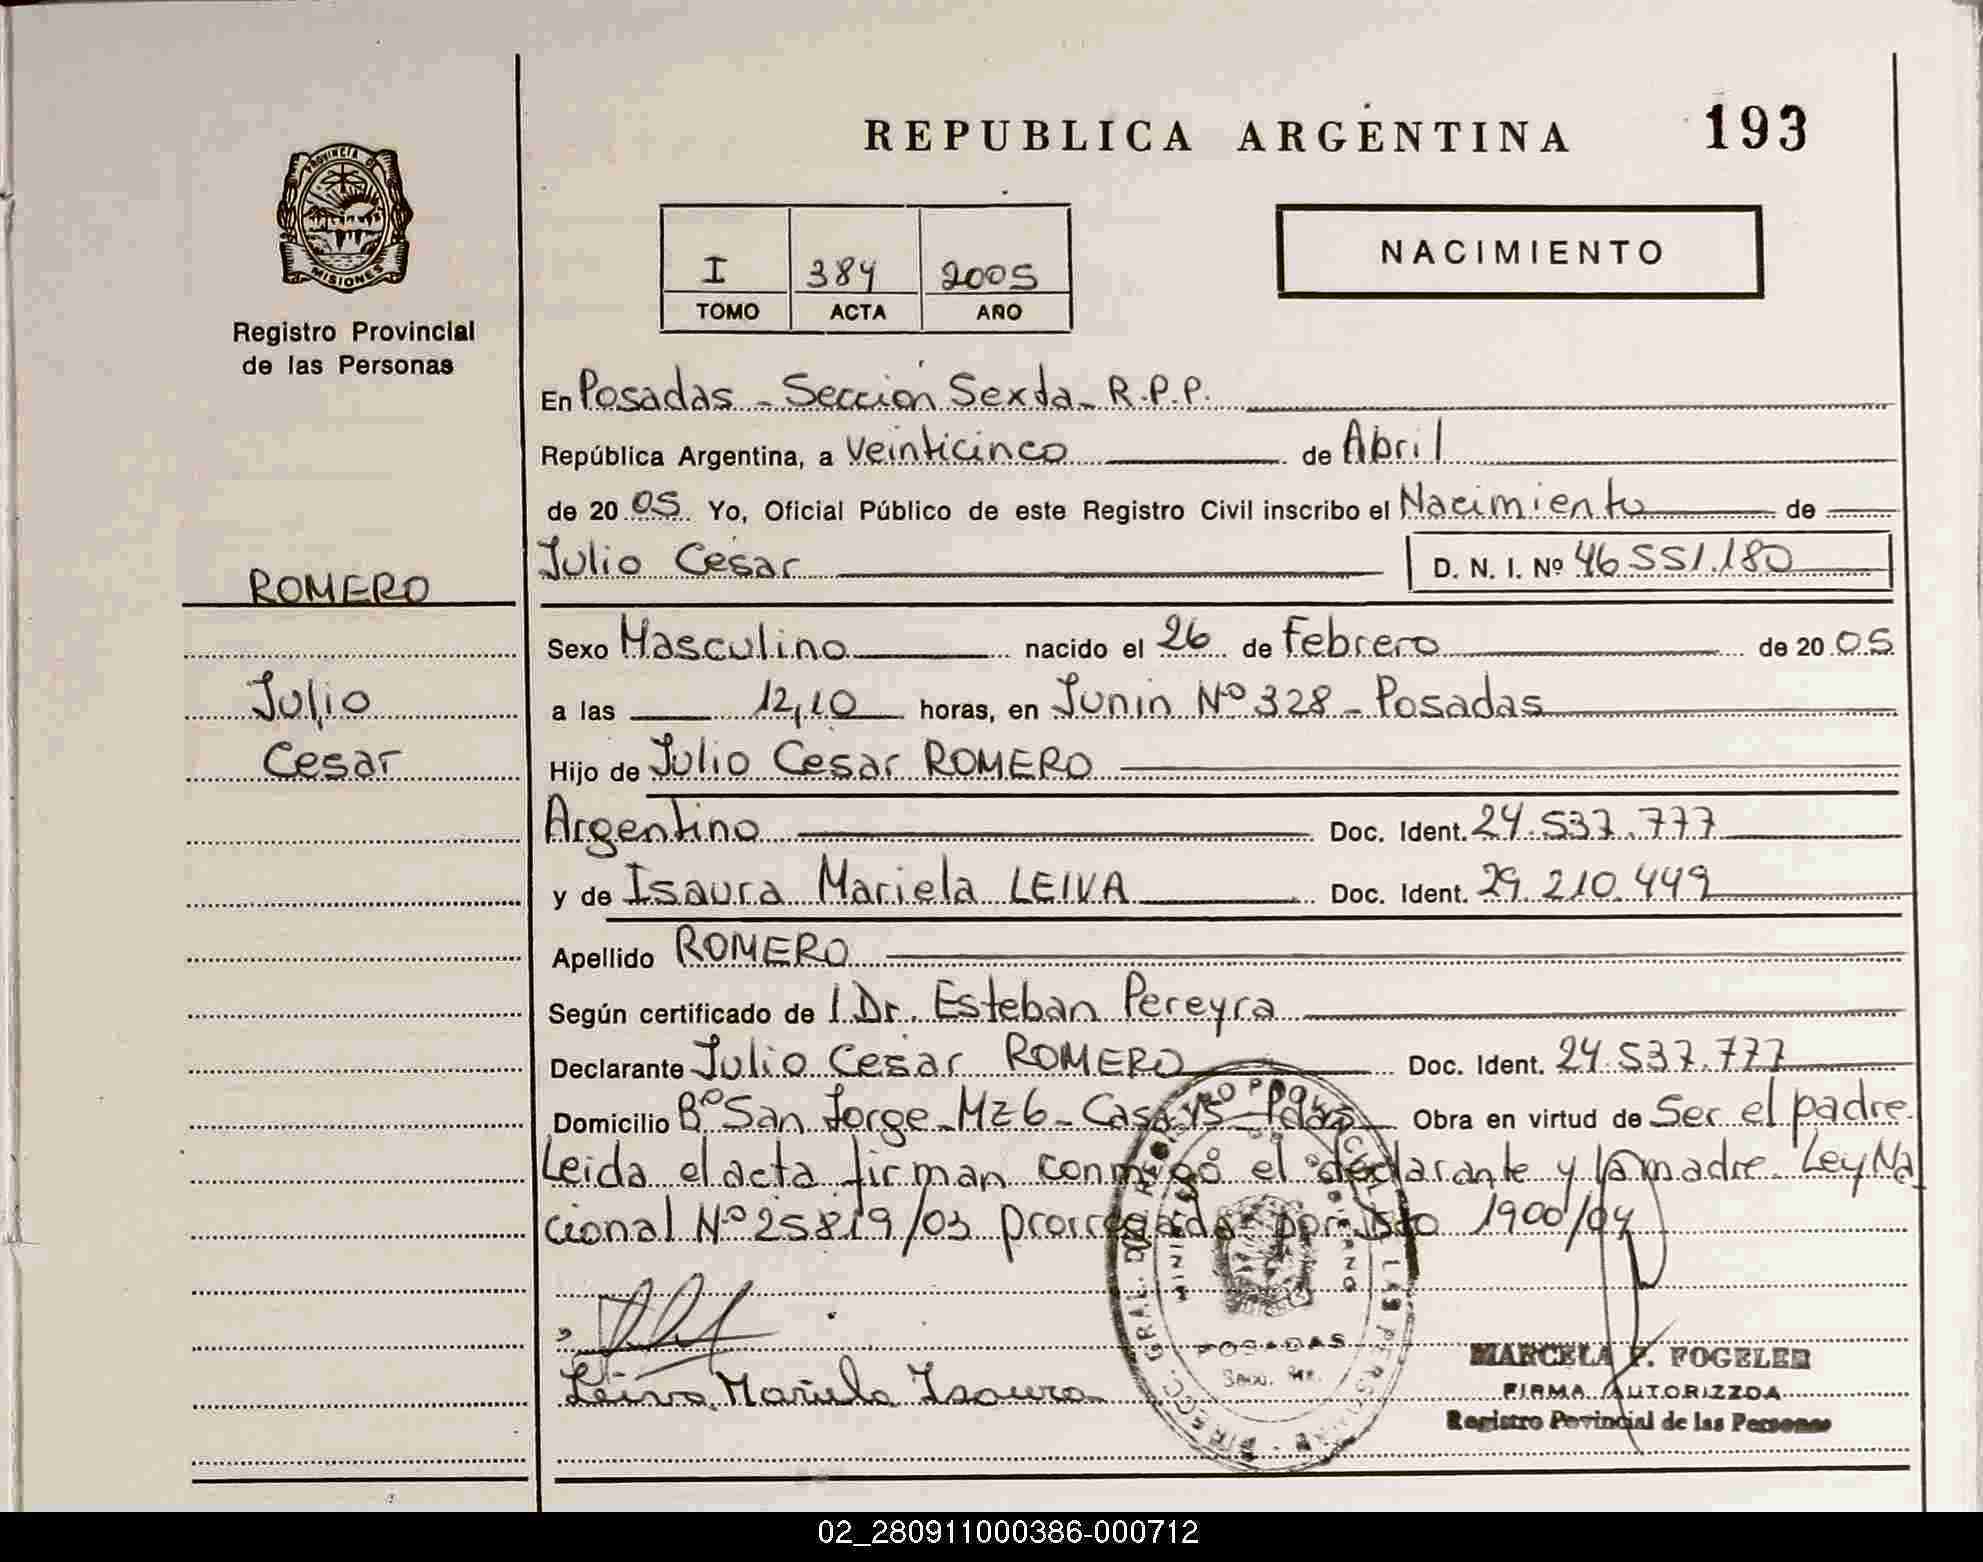 REPUBLICA ARGENTINA 193
PROVINCIA D
MISIONES
Registro Provincial
de las Personas
I 384 2005
TOMO ACTA AÑO
NACIMIENTO
ROMERO
Julio
Cesar
En Posadas - Sección Sexta - R.P.P.
República Argentina, a Veinticinco de Abril
de 2005 Yo, Oficial Público de este Registro Civil inscribo el Nacimiento de
Julio Cesar D. N. I. Nº 46.551.180
Sexo Masculino nacido el 26 de Febrero de 2005
a las 12,10 horas, en Junin Nº 328 - Posadas
Hijo de Julio Cesar ROMERO
Argentino Doc. Ident. 24.537.777
y de Isaura Mariela LEIVA Doc. Ident. 29.210.449
Apellido ROMERO
Según certificado de l Dr. Esteban Pereyra
Declarante Julio Cesar ROMERO Doc. Ident. 24.537.777
Domicilio Bº San Jorge - Mz 6 - Casa 15 - Pdas Obra en virtud de Ser el padre.
Leida el acta firman conmigo el declarante y la madre. Ley Na
cional Nº 25819/03 prorrogada por Dto 1900/04
Leiva Mariela Isaura
POSADAS
MARCELA F. FOGELER
FIRMA AUTORIZZDA
Registro Povincial de las Personas
02_280911000386-000712